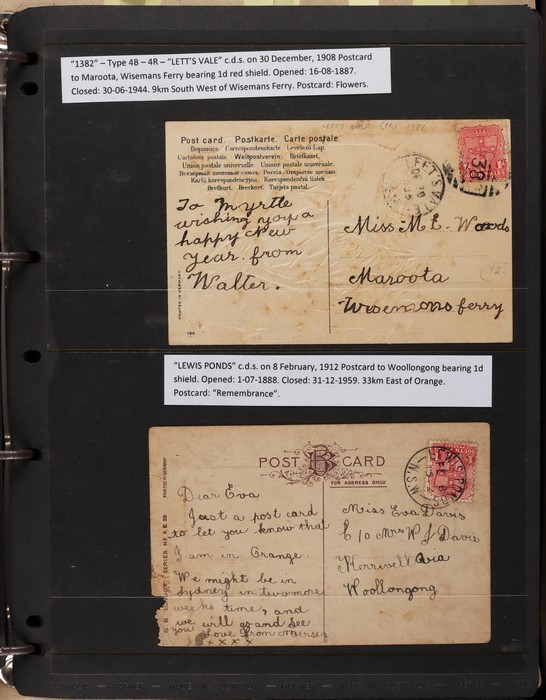 "1382" – Type 4B – 4R – "LETT'S VALE" c.d.s. on 30 December, 1908 Postcard
to Maroota, Wisemans Ferry bearing 1d red shield. Opened: 16-08-1887.
Closed: 30-06-1944. 9km South West of Wisemans Ferry. Postcard: Flowers.
LETT'S VALE 1382
Post card. Postkarte. Carte postale.
Dopisnice. Correspondenskarte. Levelező-Lap.
Cartolina postale. Weltpostverein. Briefkaart.
Union postale universelle. Unione postale universale.
Всемирный почтовый союзъ. Россiя. Открытое письмо.
Karta korespondencyjna. Korespondenční lístek
Brefkort. Brevkort. Tarjeta postal.
To Myrtle
wishing you a
happy New
Year. from
Walter.
Miss M. E. Woods
Maroota
Wisemons ferry
PRINTED IN GERMANY
"LEWIS PONDS" c.d.s. on 8 February, 1912 Postcard to Woollongong bearing 1d
shield. Opened: 1-07-1888. Closed: 31-12-1959. 33km East of Orange.
Postcard: "Remembrance".
POST B CARD
FOR ADDRESS ONLY
LEWIS PONDS N.S.W
Dear Eva
Just a post card
to let you know that
I am in Orange.
We might be in
Sydney in two more
weeks time, and
we will go and see
you Love from
x x x x
Miss Eva Davis
C/o Mrs W J Davis
Woollongong
SERIES No